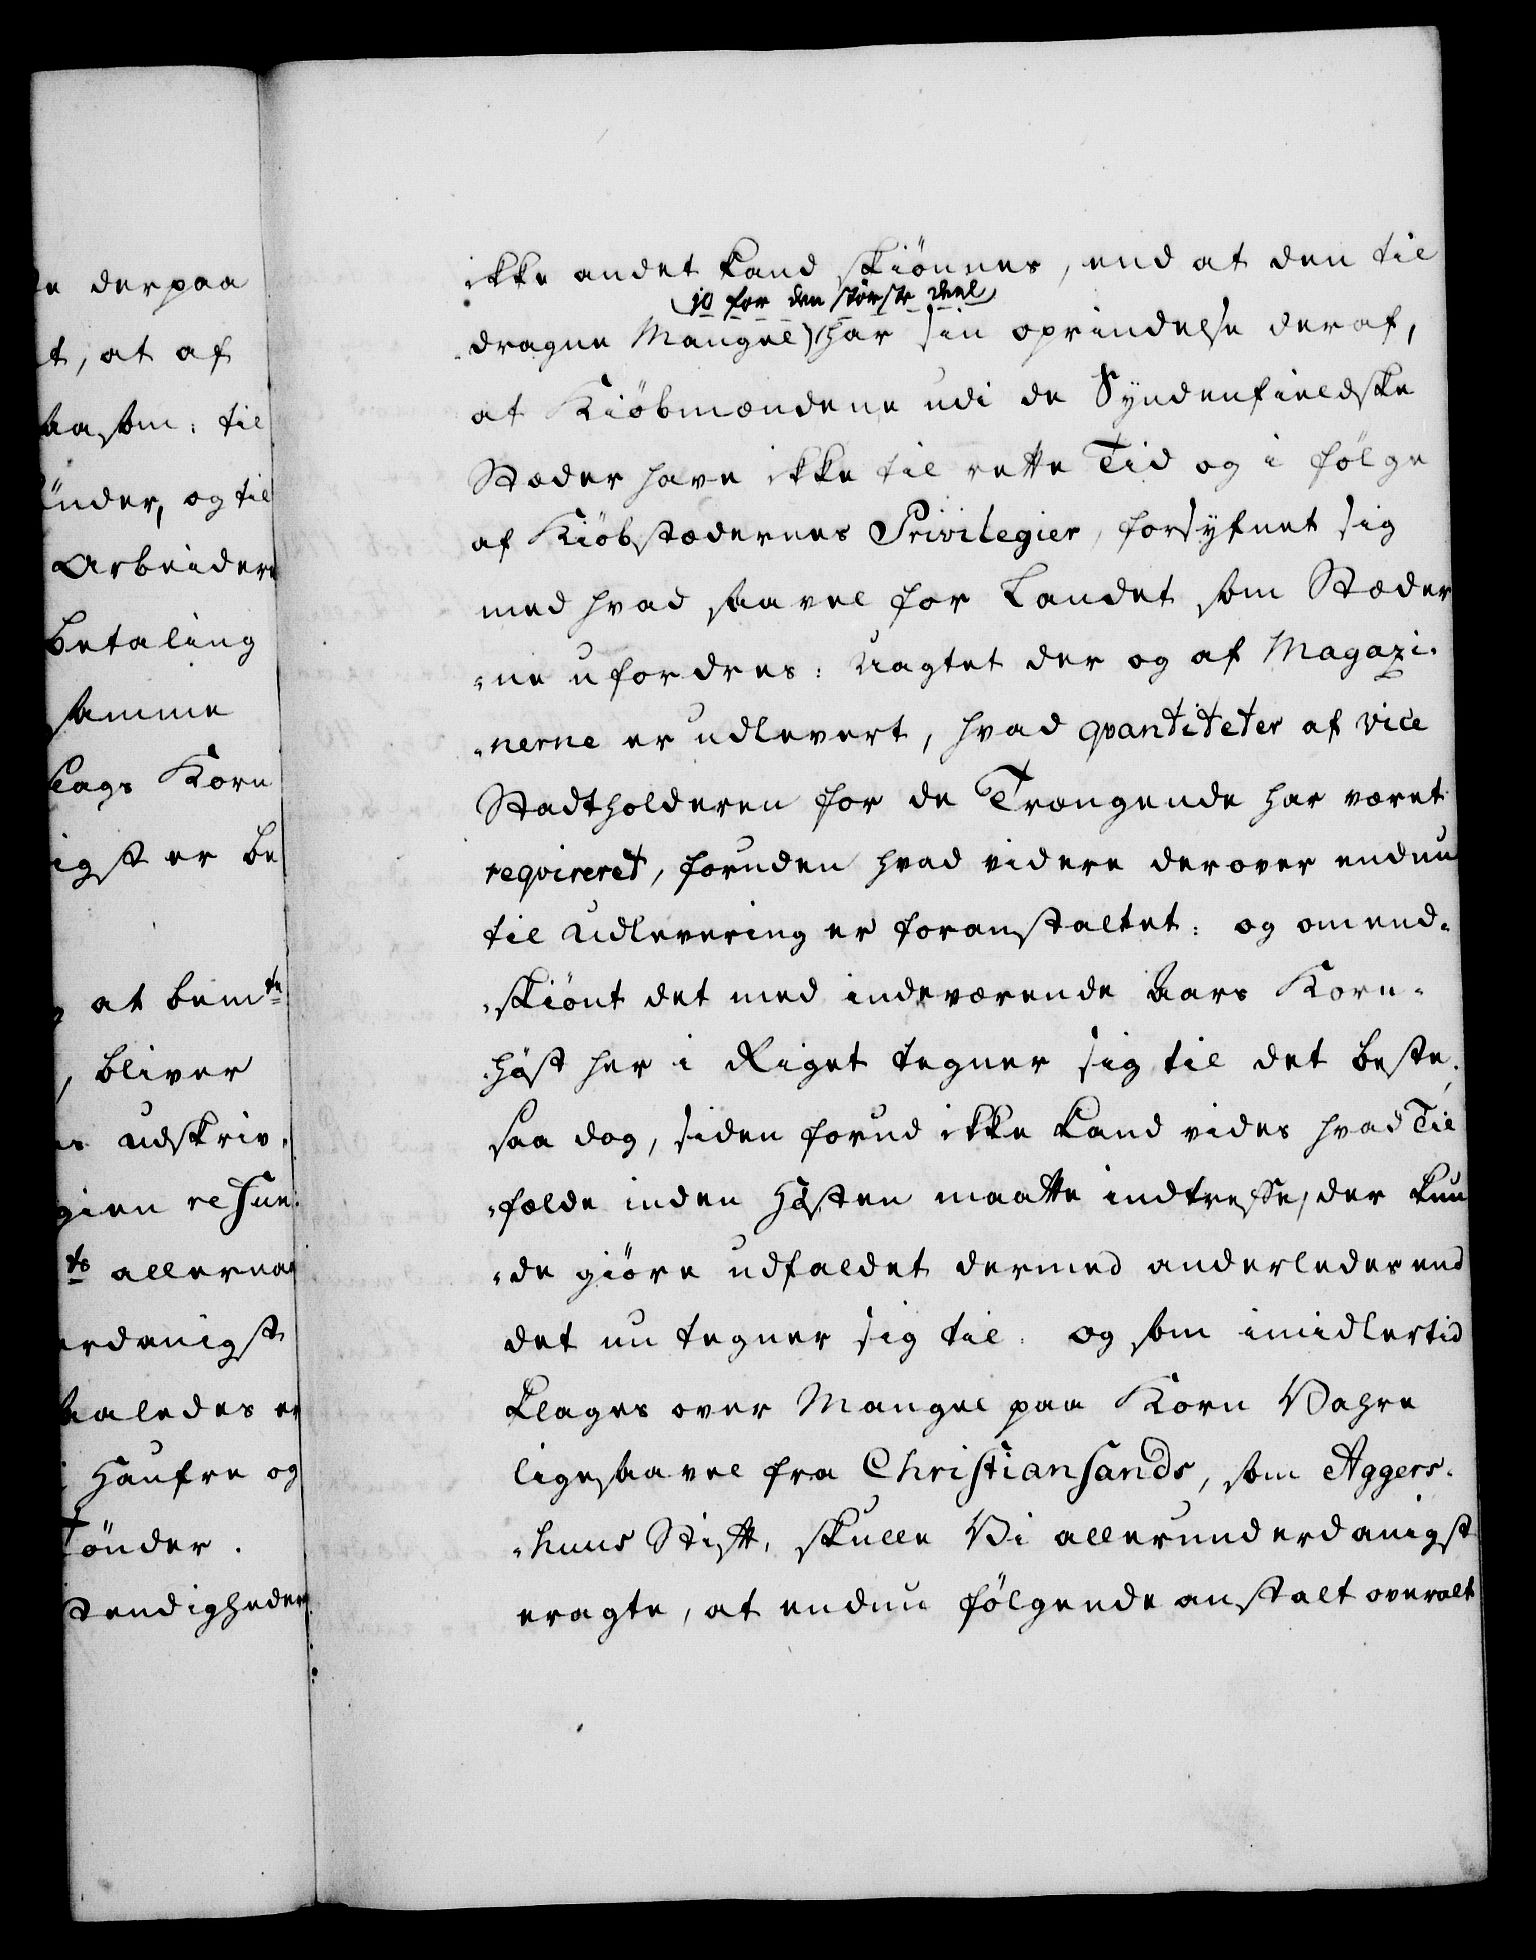 de derpaa
t, at af
saasom: til
ünder, og til
Arbeidere
betaling
samme
slags Korn
igst er be
at bemte
, bliver
udskriv-
gien resue
ts allernaa
erdanigst
saaledes er
Haufre og
Tönder.
stendigheder
ikke andet kand skiönnes, end at den til
jo for den störste deel
dragne Mangel) har sin oprindelse deraf,
at Kiöbmændene udi de Syndenfieldske
Stæder have ikke til rette Tid og i fölge
af Kiöbstædernes Privilegier, forsÿfnet sig
med hvad saavel for Landet som Stæder
-ne ufordres: Uagtet der og af Magazi-
-nerne er udlevert, hvad qvantiteter af Vice
Stadtholderen for de Trængende har været
reqvireret, foruden hvad videre derover endnu
til Udlevering er foranstaltet: og omend-
-skiönt det med indeværende Aars Korn-
-höst her i Riget tegner sig til det beste;
saa dog, siden forud ikke kand vides hvad Til
-fælde inden Hösten maatte indtreffe, der kun
-de giöre udfaldet dermed anderledes end
det nu tegner sig til. og som imidlertid
klages over Mangel paa Korn Vahre
ligesaavel fra Christiansands, som Aggers-
-huus Stift, skulle Vi allerunderdanigst
eragte, at endnu fölgende anstalt overalt